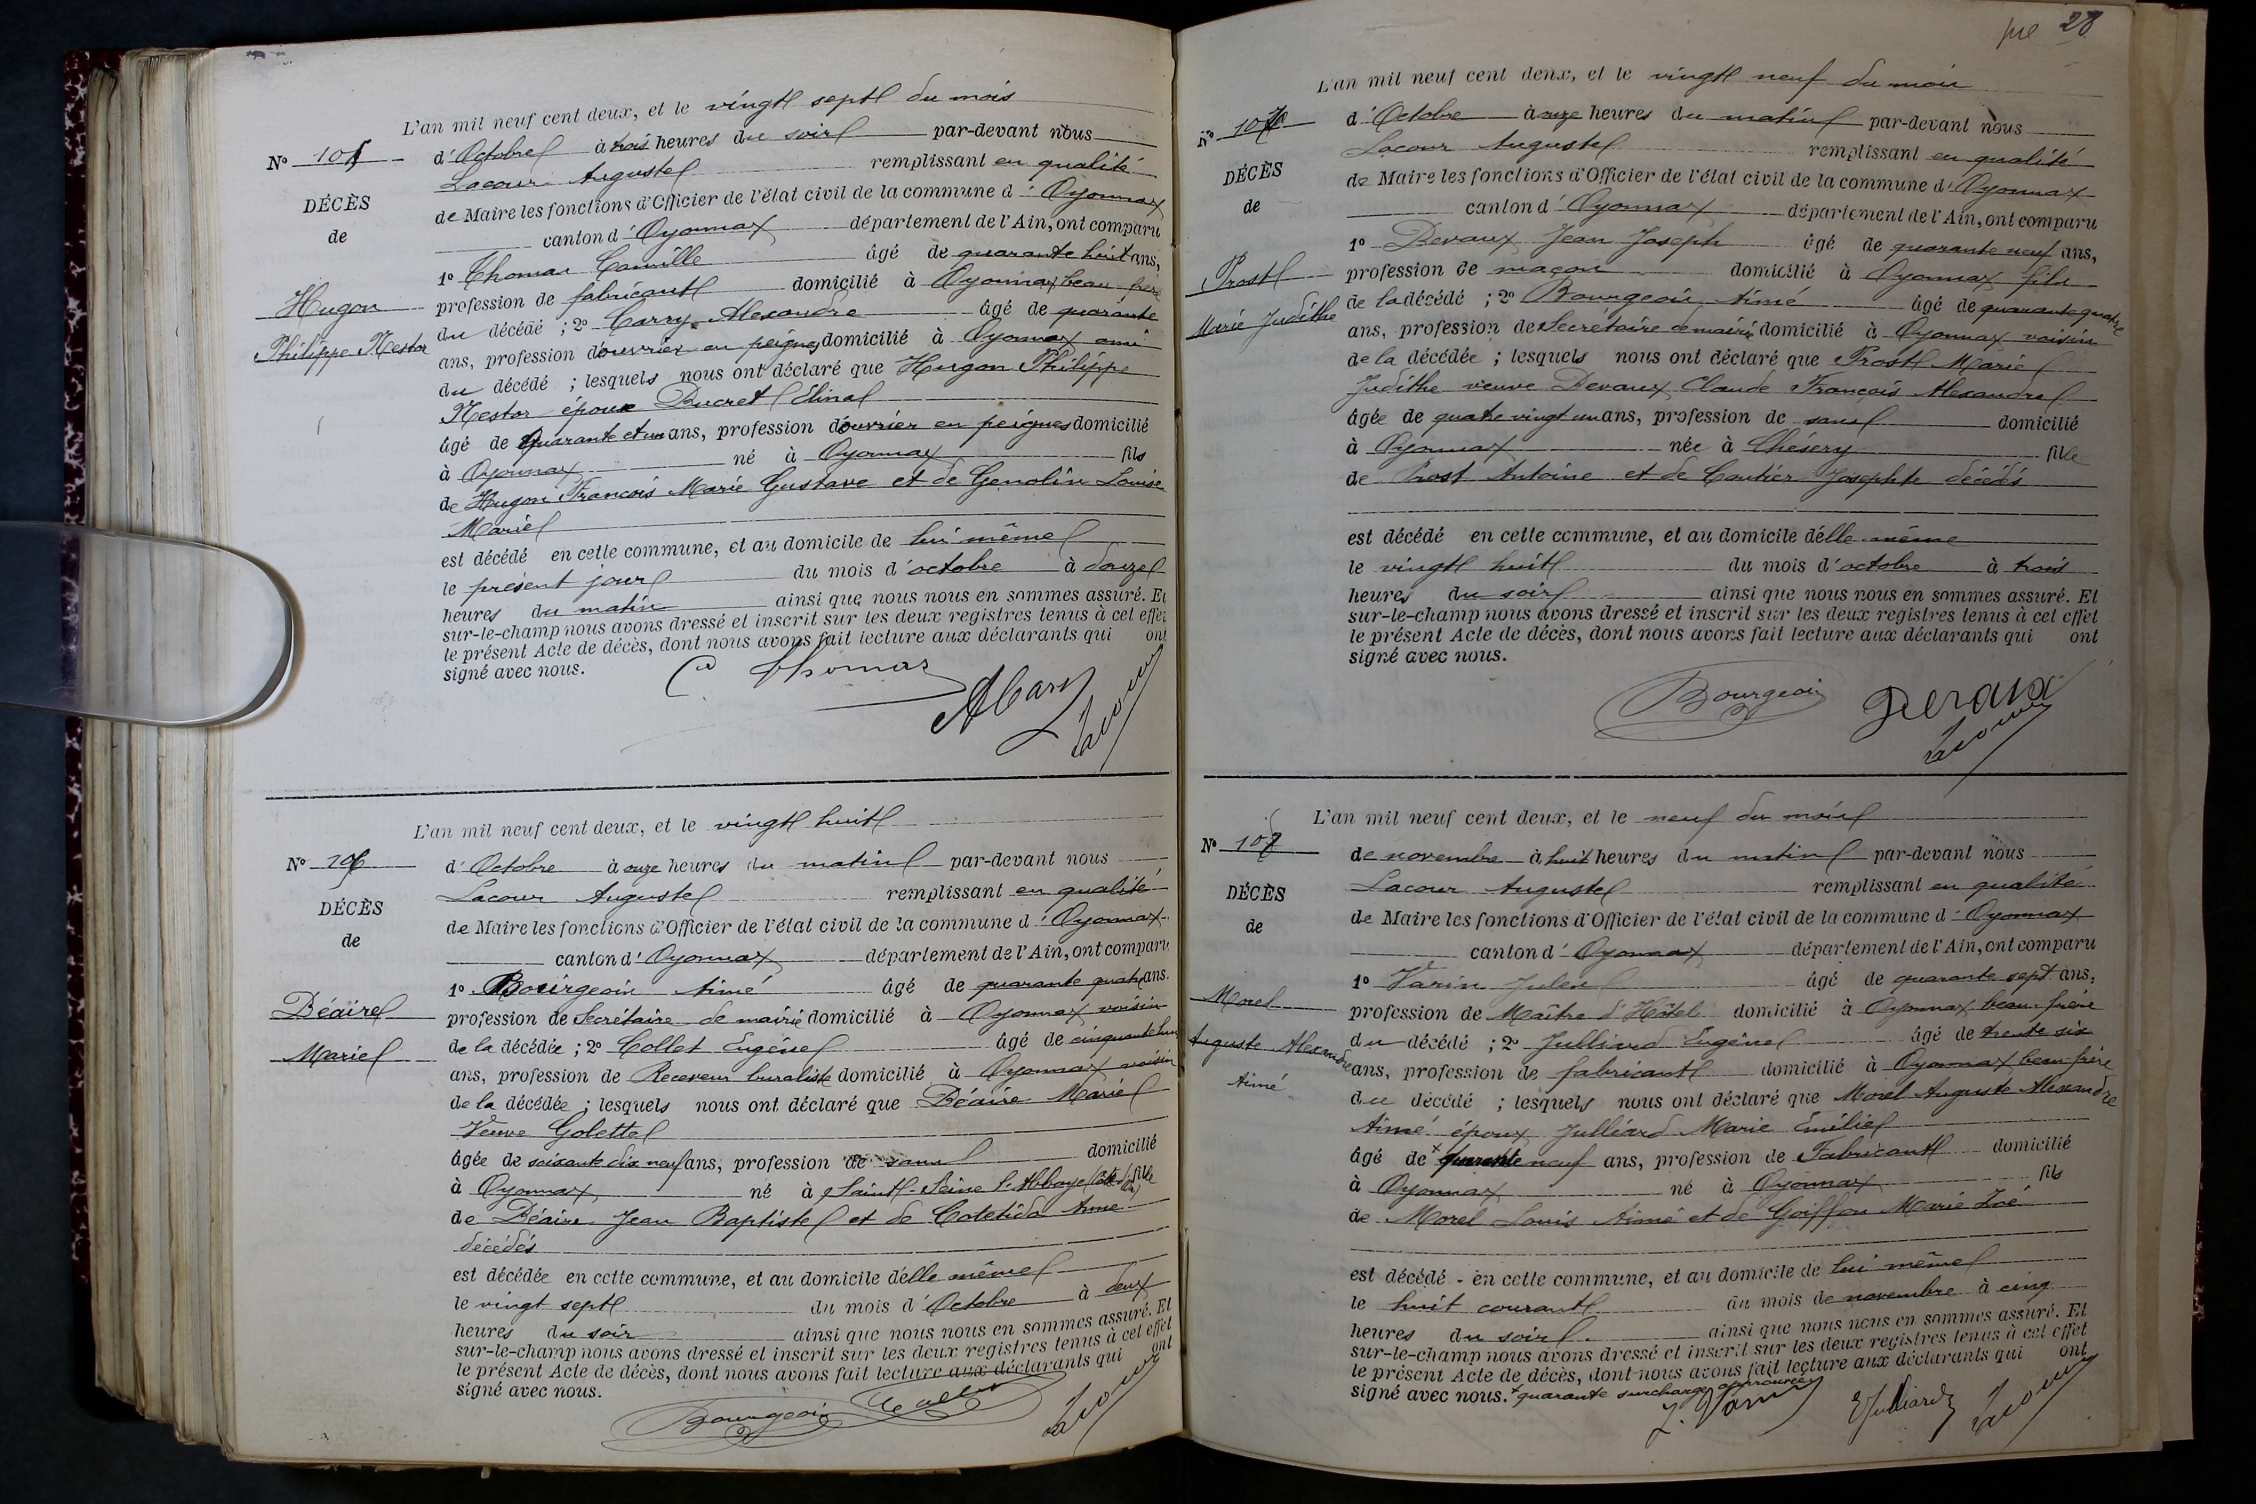 L'an mil neuf cent deux, et le vingt sept du mois
N° 105
d'Octobre à trois heures du soir par-devant nous
DÉCÈS
Lacour Auguste remplissant en qualité
de
de Maire les fonctions d'Officier de l'état civil de la commune d'Oyonnax
canton d'Oyonnax département de l'Ain, ont comparu
1° Thomas Camille âgé de quarante huit ans,
Hugon
profession de fabricant domicilié à Oyonnax beau frère
Philippe Nestor
du décédé ; 2° Carry Alexandre âgé de quarante
ans, profession d'ouvrier en peignes domicilié à Oyonnax ami
du décédé ; lesquels nous ont déclaré que Hugon Philippe
Nestor époux Ducret Elina
âgé de Quarante et un ans, profession d'ouvrier en peignes domicilié
à Oyonnax né à Oyonnax fils
de Hugon François Marie Gustave et de Genolin Louise
Marie
est décédé en cette commune, et au domicile de lui même
le présent jour du mois d'octobre à douze
heures du matin ainsi que nous nous en sommes assuré. Et
sur-le-champ nous avons dressé et inscrit sur les deux registres tenus à cet effet
le présent Acte de décès, dont nous avons fait lecture aux déclarants qui ont
signé avec nous.
C Thomas ACarry Lacour
L'an mil neuf cent deux, et le vingt huit
N° 106
d'Octobre à onze heures du matin par-devant nous
DÉCÈS
Lacour Auguste remplissant en qualité
de
de Maire les fonctions d'Officier de l'état civil de la commune d'Oyonnax
canton d'Oyonnax département de l'Ain, ont comparu
1° Bourgeois Aimé âgé de quarante quatre ans.
Béaire
profession de Secrétaire de mairie domicilié à Oyonnax voisin
Marie
de la décédée ; 2° Collet Eugène âgé de cinquante un
ans, profession de Receveur buraliste domicilié à Oyonnax voisin
de la décédée ; lesquels nous ont déclaré que Béaire Marie
Veuve Golette
âgée de soixante dix neuf ans, profession de sans domicilié
à Oyonnax né à Saint-Seine l'Abbaye (Côte d'Or) fille
de Béaire Jean Baptiste et de Anne
décédés
est décédée en cette commune, et au domicile d'elle même
le vingt sept du mois d'Octobre à deux
heures du soir ainsi que nous nous en sommes assuré. Et
sur-le-champ nous avons dressé et inscrit sur les deux registres tenus à cet effet
le présent Acte de décès, dont nous avons fait lecture aux déclarants qui ont
signé avec nous.
Bourgeois Collet Lacour
28
L'an mil neuf cent deux, et le vingt neuf du mois
N° 107
d'Octobre à onze heures du matin par-devant nous
DÉCÈS
Lacour Auguste remplissant en qualité
de
de Maire les fonctions d'Officier de l'état civil de la commune d'Oyonnax
canton d'Oyonnax département de l'Ain, ont comparu
1° Devaux Jean Joseph âgé de quarante neuf ans,
Prost
profession de maçon domicilié à Oyonnax fils
Marie Judithe
de la décédé ; 2° Bourgeois Aimé âgé de quarante quatre
ans, profession de Secrétaire de mairie domicilié à Oyonnax voisin
de la décédée ; lesquels nous ont déclaré que Prost Marie
Judithe veuve Devaux Claude François Alexandre
âgée de quatre vingt un ans, profession de sans domicilié
à Oyonnax née à Chésery fille
de Prost Antoine et de Coutier Josephte décédés
est décédé en cette commune, et au domicile d'elle même
le vingt huit du mois d'octobre à trois
heures du soir ainsi que nous nous en sommes assuré. Et
sur-le-champ nous avons dressé et inscrit sur les deux registres tenus à cet effet
le présent Acte de décès, dont nous avons fait lecture aux déclarants qui ont
signé avec nous.
Bourgeois Devaux Lacour
L'an mil neuf cent deux, et le neuf du mois
N° 108
de novembre à huit heures du matin par-devant nous
DÉCÈS
Lacour Auguste remplissant en qualité
de
de Maire les fonctions d'Officier de l'état civil de la commune d'Oyonnax
canton d'Oyonnax département de l'Ain, ont comparu
1° Varin Jules âgé de quarante sept ans,
Morel
profession de Maître d'Hôtel domicilié à Oyonnax beau-frère
Auguste Alexandre
du décédé ; 2° Julliard Eugène âgé de trente six
Aimé
ans, profession de fabricant domicilié à Oyonnax beau-frère
du décédé ; lesquels nous ont déclaré que Morel Auguste Alexandre
Aimé époux Julliard Marie Emilie
âgé de + quarante neuf ans, profession de Fabricant domicilié
à Oyonnax né à Oyonnax fils
de Morel Louis Aimé et de Goiffon Marie Zoé
est décédé en cette commune, et au domicile de lui même
le huit courant du mois de novembre à cinq
heures du soir ainsi que nous nous en sommes assuré. Et
sur-le-champ nous avons dressé et inscrit sur les deux registres tenus à cet effet
le présent Acte de décès, dont nous avons fait lecture aux déclarants qui ont
signé avec nous. + quarante surcharge approuvée
J. Varin EJulliard Lacour